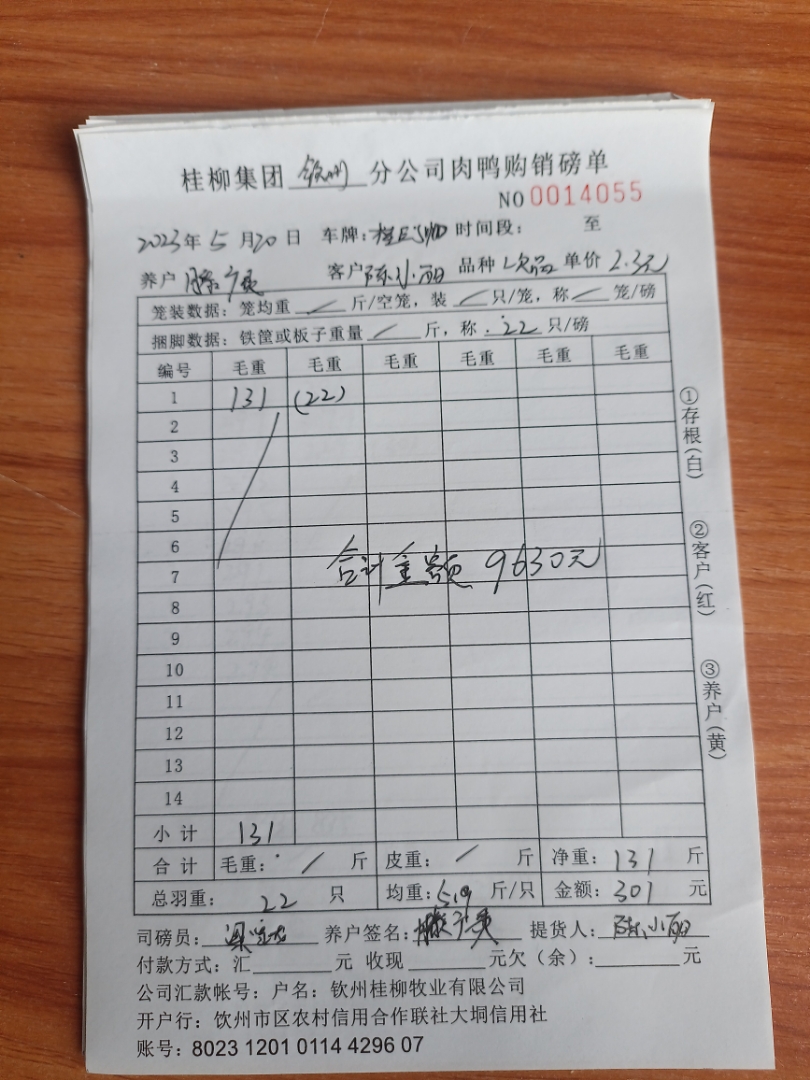 桂柳集团 钦州 分公司肉鸭购销磅单
NO 0014055
2023年 5 月20 日 车牌: 时间段: 至
养户 客户 陈小丽 品种 次品 单价 2.3元
笼装数据: 笼均重 / 斤/空笼, 装 / 只/笼, 称 / 笼/磅
捆脚数据: 铁筐或板子重量 / 斤, 称 22 只/磅
编号 毛重 毛重 毛重 毛重 毛重 毛重
1 131 (22)
2
3
4
5
6
合计金额 9630元
7
8
9
10
11
12
13
14
小计 131
合计 毛重: / 斤 皮重: / 斤 净重: 131 斤
总羽重: 22 只 均重: 5.9 斤/只 金额: 301 元
司磅员: 养户签名: 提货人: 陈小丽
付款方式: 汇 元 收现 元欠(余): 元
公司汇款帐号: 户名: 钦州桂柳牧业有限公司
开户行: 钦州市区农村信用合作联社大垌信用社
账号: 8023 1201 0114 4296 07
①存根(白)
②客户(红)
③养户(黄)